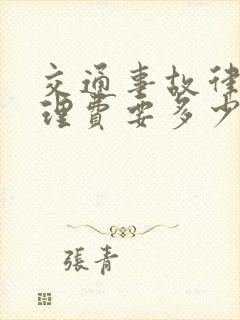 交通事故律
理費要多少
張青